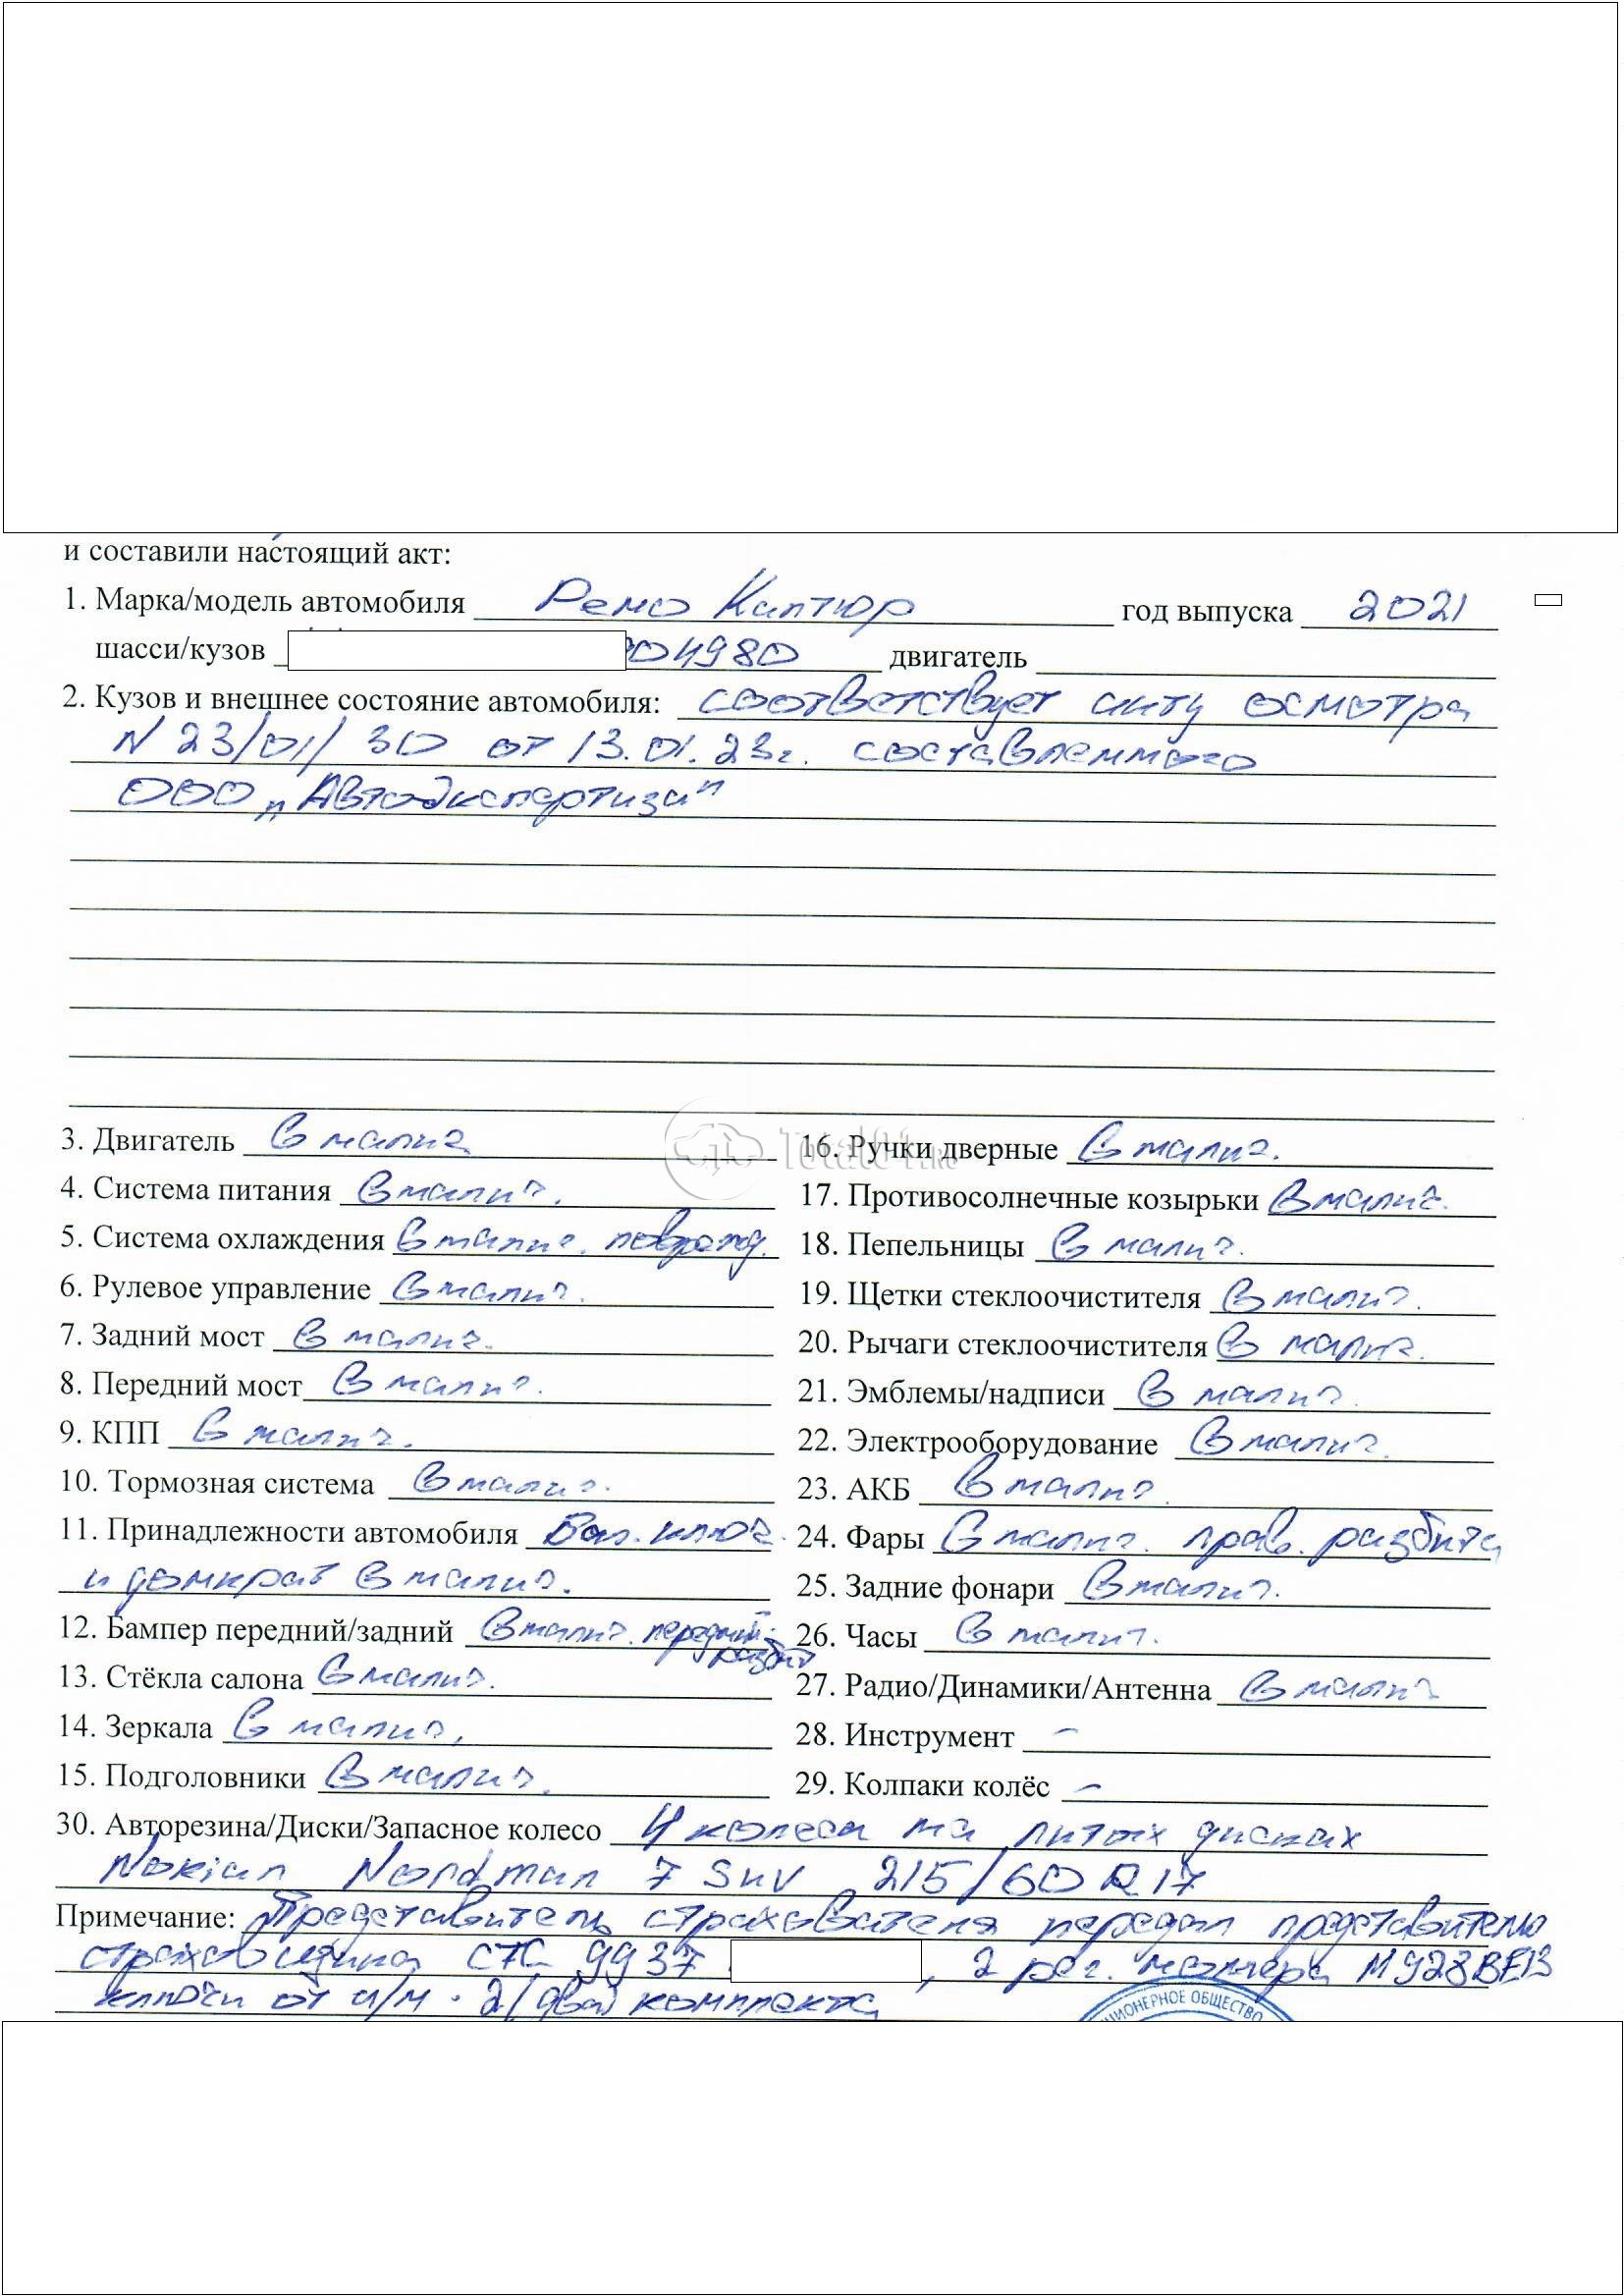 и составили настоящий акт:
1. Марка/модель автомобиля Рено Каптюр год выпуска 2021
шасси/кузов 04980 двигатель
2. Кузов и внешнее состояние автомобиля: соответствует акту осмотра
N 23/01/30 от 13.01.23г. составленного
ООО „Автоэкспертиза"
3. Двигатель в налич
4. Система питания в налич.
5. Система охлаждения в налич. поврежд.
6. Рулевое управление в налич.
7. Задний мост в налич.
8. Передний мост в налич.
9. КПП в налич.
10. Тормозная система в налич.
11. Принадлежности автомобиля Бал. ключ
и домкрат в налич.
12. Бампер передний/задний в налич. передний разбит
13. Стёкла салона в налич.
14. Зеркала в налич.
15. Подголовники в налич.
16. Ручки дверные в налич.
17. Противосолнечные козырьки в налич.
18. Пепельницы в налич.
19. Щетки стеклоочистителя в налич.
20. Рычаги стеклоочистителя в налич.
21. Эмблемы/надписи в налич.
22. Электрооборудование в налич.
23. АКБ в налич.
24. Фары в налич. прав. разбита
25. Задние фонари в налич.
26. Часы в налич.
27. Радио/Динамики/Антенна в налич
28. Инструмент –
29. Колпаки колёс –
30. Авторезина/Диски/Запасное колесо 4 колеса на литых дисках
Nokian Nordman 7 SUV 215/60 R17
Примечание: Представитель страхователя передал представителю
страховщика СТС 9937 , 2 рег. номера М928ВЕ13
ключи от а/м - 2 (два) комплекта
ЦИОНЕРНОЕ ОБЩЕСТВО
Total01.RU